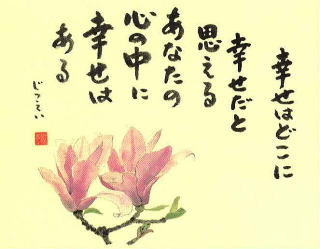 幸せはどこに
幸せだと
思える
あなたの
心の中に
幸せは
ある